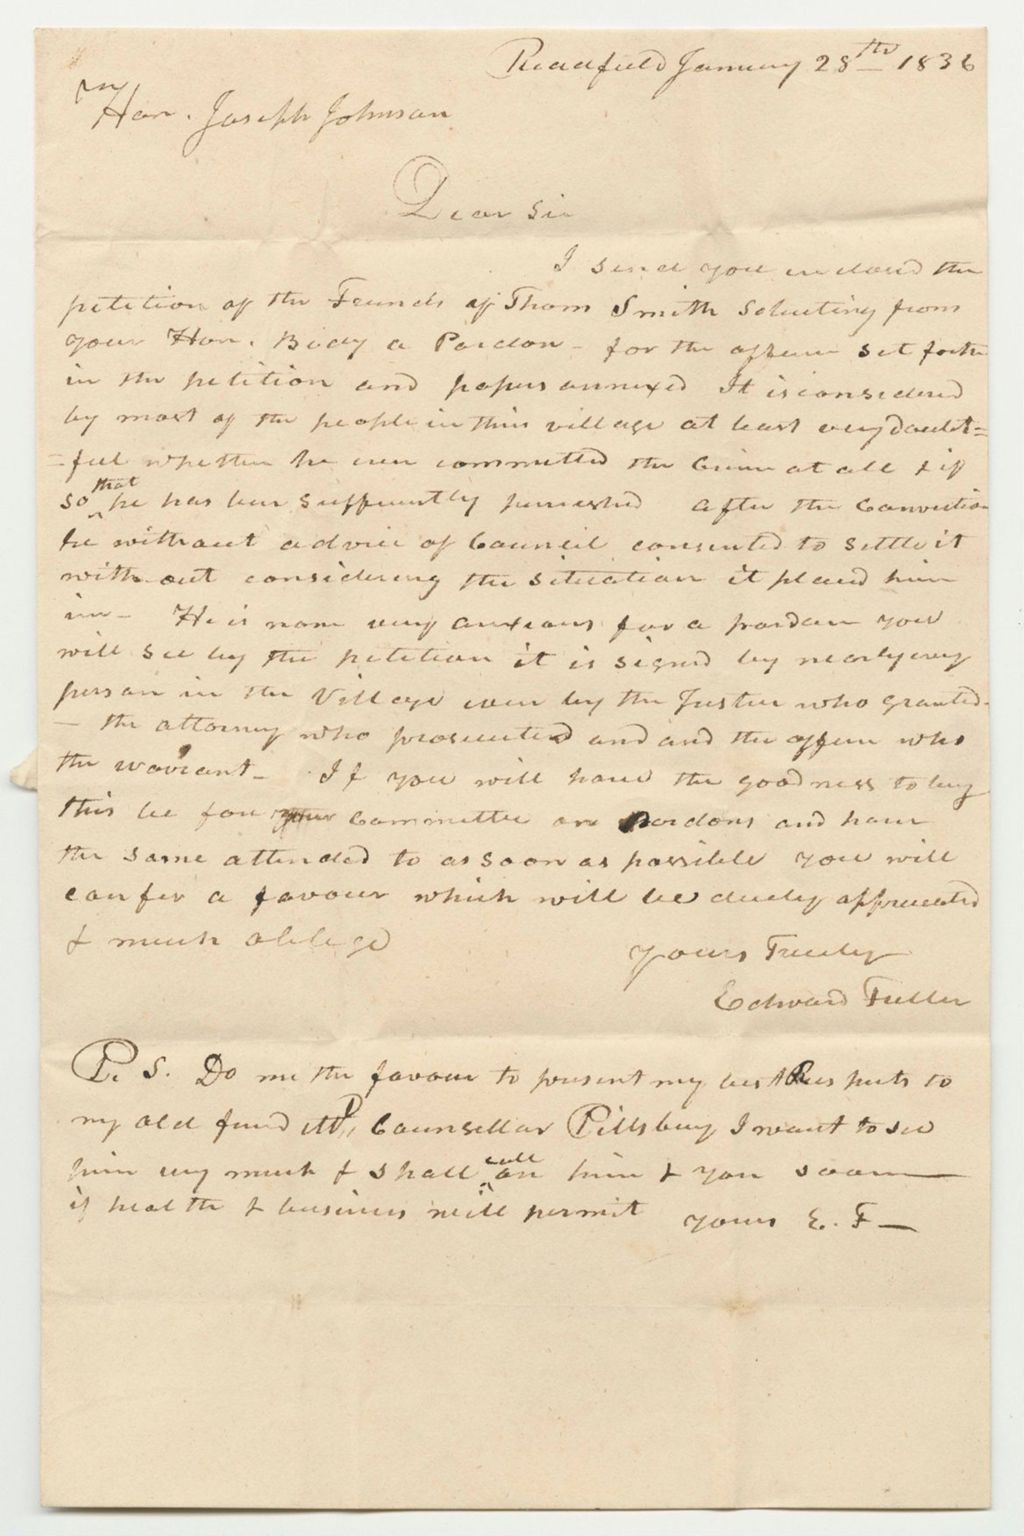 Readfield January 28th 1836
Hon. Joseph Johnson
Dear Sir
I send you inclosed the
petition of the Freinds of Thom Smith Soliciting from
your Hon. Body a Pardon - for the offence set forth
in the petition and papers annexed It is considered
by most of the people in this village at least very doubt=
=ful whether he ever committed the Crime at all & if
so that he has ben sufficiently punished After the Conviction
he without advice of Council consented to settle it
with-out considering the situation it placed him
in - He is now very anxious for a pardon you
will see by the petition it is signed by nearly every
person in the Village even by the Justice who granted -
- the attorney who prosecuted and and the officer who
the warrant - If you will have the goodness to lay
this be fore your Committee on Pardons and have
the same attended to as soon as possible you will
confer a favour which will be duely appreciated
& much oblige
Yours Truely
Edward Fuller
P. S. Do me the favour to present my best Respects to
my old friend Counsellor Pillsbury I want to see
him very much & shall call on him & you soon
if health & business will permit yours E. F -